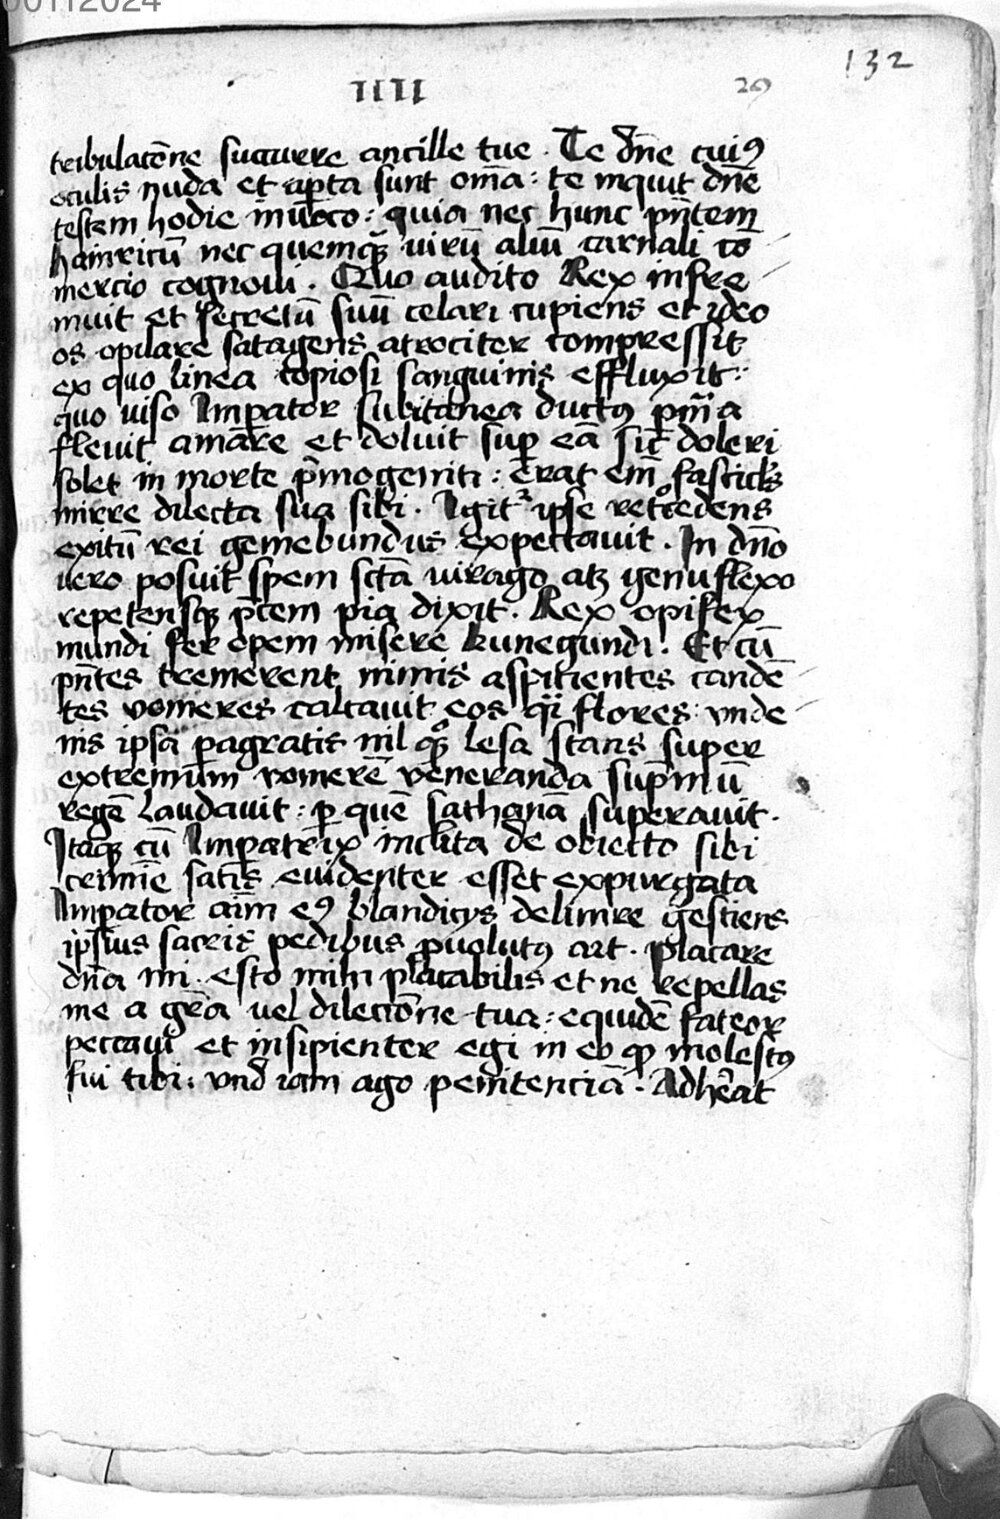 00112024
132
IIII 29
tribulatōne sucurrere ancille tue . Te dn̄e cuiꝯ
oculis nuda et ap̱ta sunt om̄a : te inquit dn̄e
testem hodie inuoco : quia nec hunc pn̄tem
hainricū nec quemqꝫ virū aliū carnali co
mercio cognoui . Quo audito Rex infre
muit et secretū suū celari cupiens et ideo
os opilare satagens atrociter compressit
ex quo linea copiosi sanguinis effluxit :
quo viso Imꝑator subitanea ductꝯ pnīa
fleuit amare et doluit suꝑ eā sic̄ doleri
solet in morte p̄mogeniti : erat em̄ fascicls
mirre dilecta sua sibi . Igitr ipse retrocedens
exitū rei gemebundus expectauit . In dn̄o
vero posuit spem sctā virago atqꝫ genu flexo
repetensqꝫ p̄cem pia dixit . Rex opifex
mundi fer opem misere kunegundi . Et cū
pn̄tes tremerent nimis aspitientes cande
tes vomeres calcauit eos qi flores : vnde
nis ipsā ꝑagratis nil qꝫ lesa stans super
extremum vomerē veneranda sup̄mū
regē laudauit : ꝑ quē sathanā superauit .
Itaqꝫ cū Imꝑatrix inclita de obiecto sibi
crimīe satis euidenter esset expurgata
Imꝑator aīm eꝯ blandicijs delinire gestiens
ipsius sacris pedibus ꝓuolutꝯ ait . placare
dn̄a mi . esto mihi placabilis et ne repellas
me a grā uel dilectōne tua : equidē fateor
peccaui et insipienter egi in eo ꝙ molestꝯ
fui tibi : vnd iam ago penitenciā . Adhēat